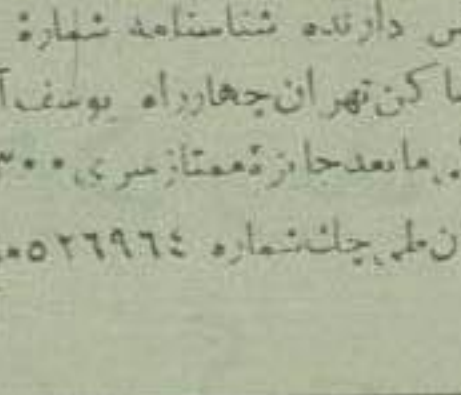 س دارنده شناسنامه شمارهٔ
ساکن تهران چهارراه یوسف‌آ
مابعد جایزهٔ ممتاز سری ۳۰۰
ن طی چک شماره ۰۵۲۶۹۶٤